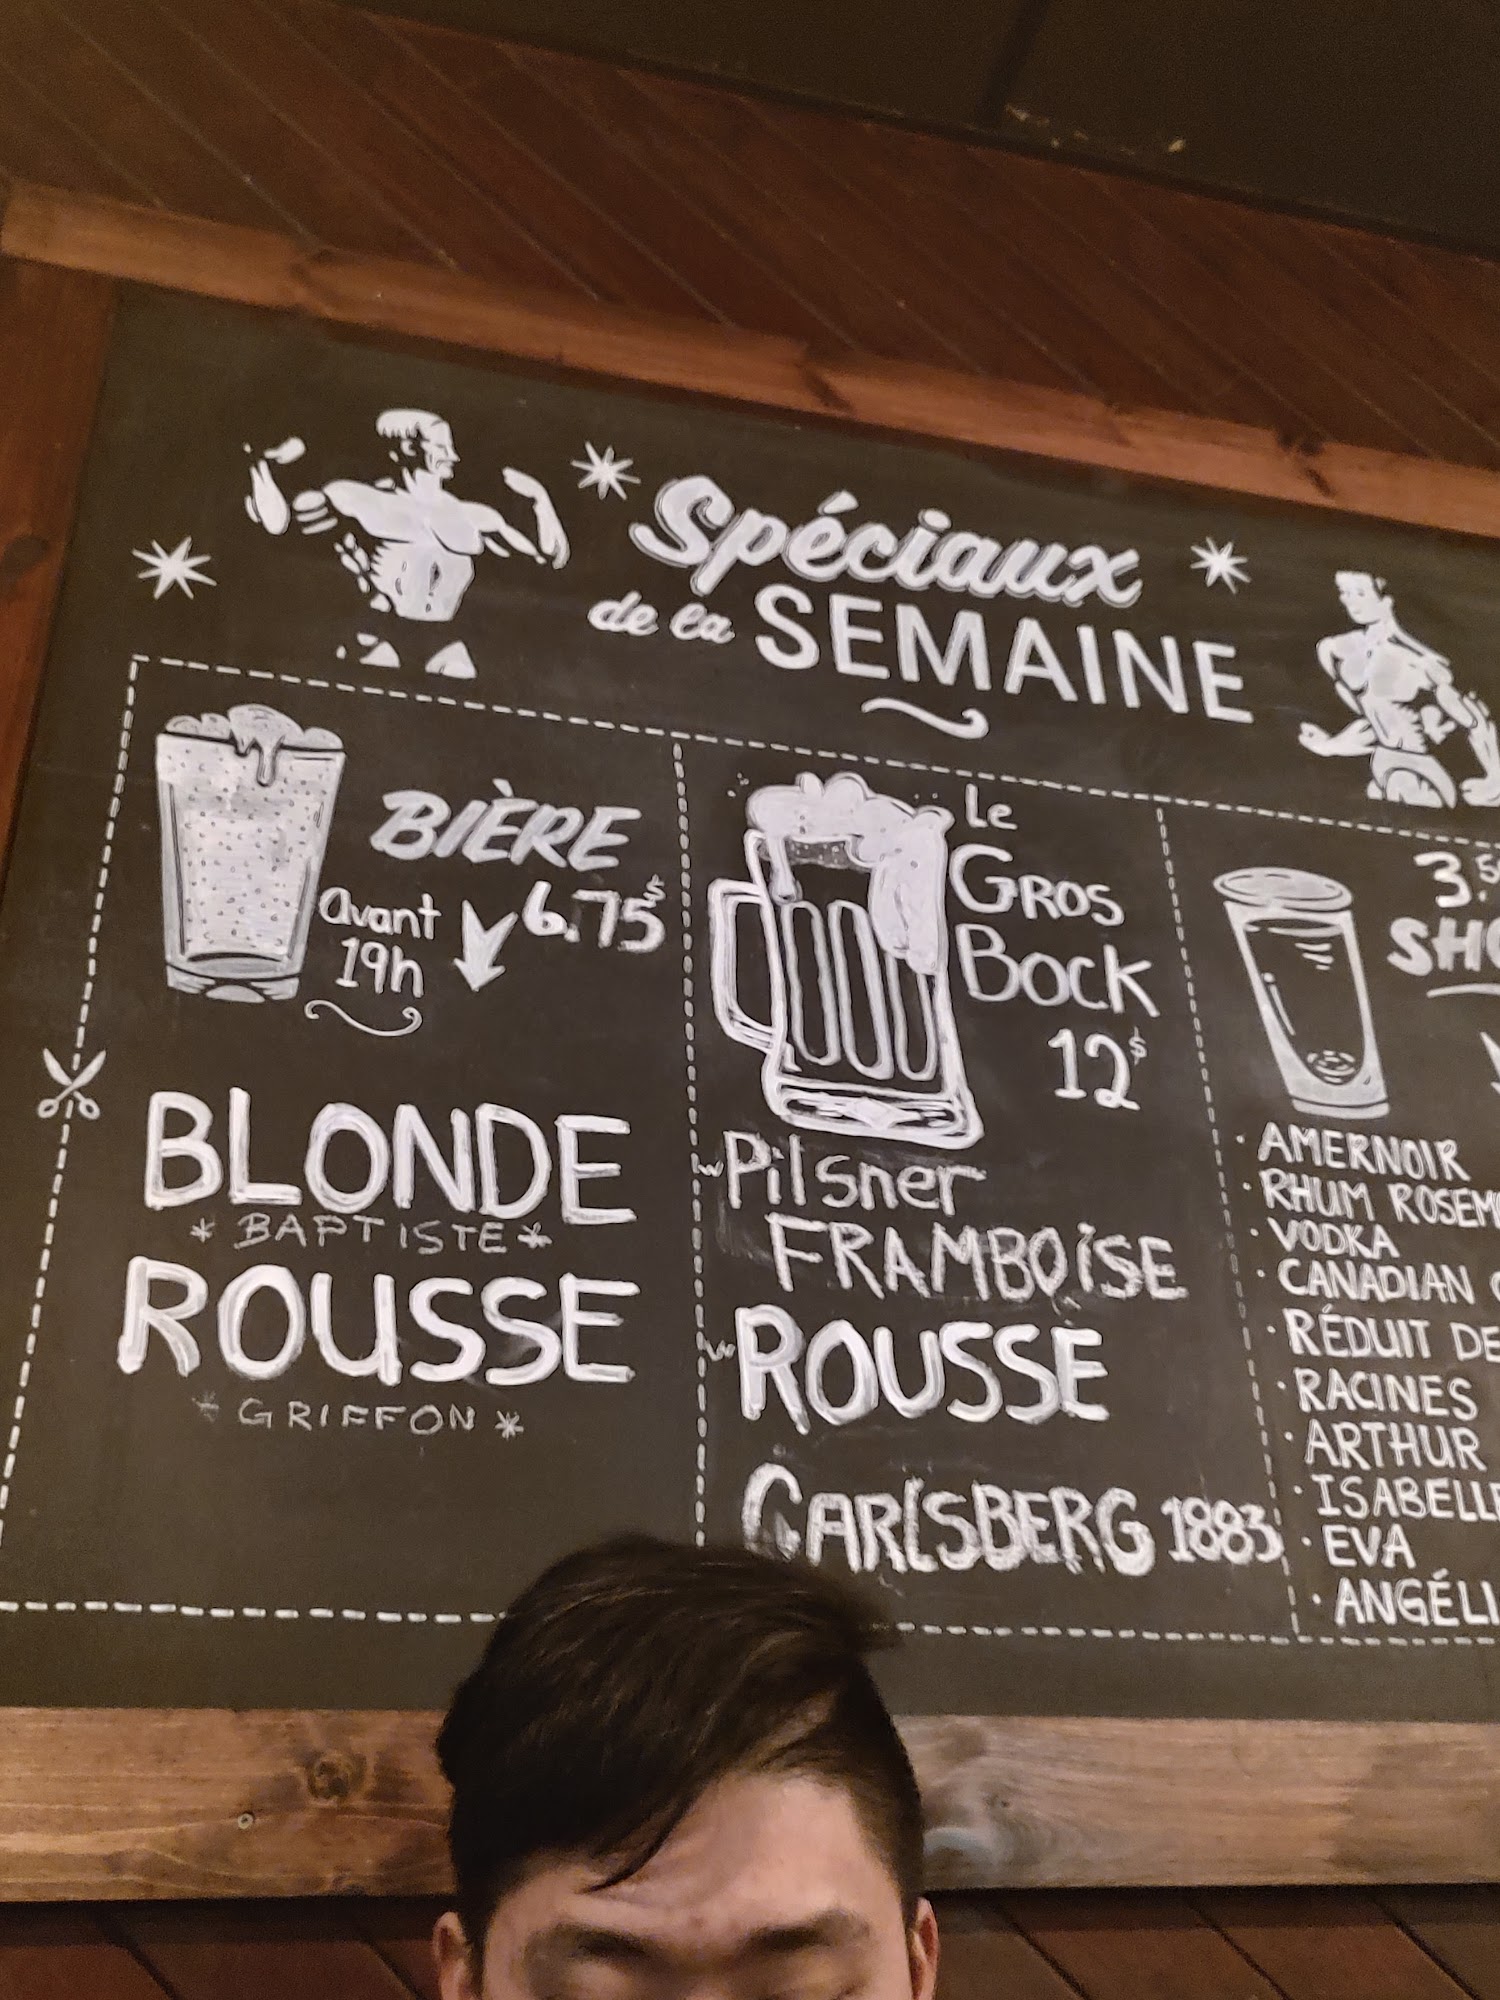 Spéciaux
de la SEMAINE
BIÈRE
avant
19h
6.75$
BLONDE
* BAPTISTE *
ROUSSE
* GRIFFON *
Le
GROS
BOCK
12$
Pilsner
FRAMBOISE
ROUSSE
CARLSBERG 1883
3.50
SHO
· AMERNOIR
· RHUM ROSEM
· VODKA
· CANADIAN
· RÉDUIT DE
· RACINES
· ARTHUR
· ISABELLE
· EVA
· ANGÉLI